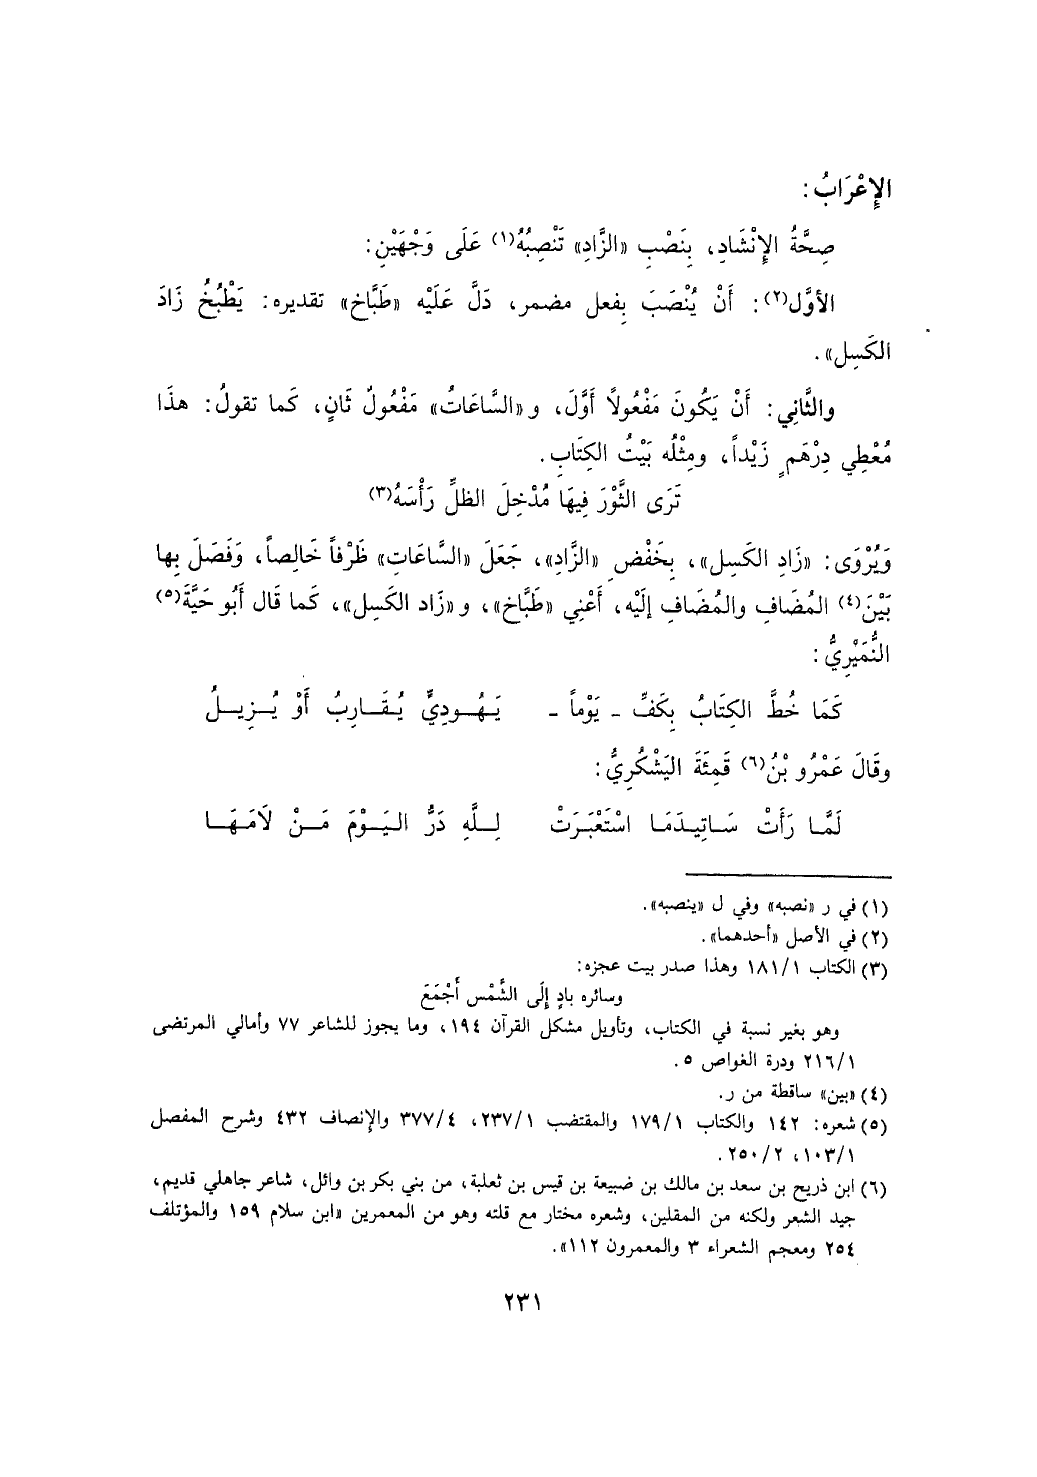 الإِعْرَابُ :
صِحَّةُ الإِنْشَادِ، بِنَصْبِ «الزَّادِ» تَنْصِبُهُ(١) عَلَى وَجْهَيْنِ:
الأوَّل(٢): أَنْ يُنْصَبَ بِفعل مضمر، دَلَّ عَلَيْه «طَبَّاخ» تقديره: يَطْبُخُ زَادَ
الكَسِل».
والثَّانِي: أَنْ يَكُونَ مَفْعُولاً أَوَّلَ، و«السَّاعَاتُ» مَفْعُولٌ ثَانٍ، كَما تقولُ: هذَا
مُعْطِي دِرْهَمٍ زَيْداً، ومِثْلُه بَيْتُ الكِتَابِ.
تَرَى الثَّوْرَ فِيهَا مُدْخِلَ الظلِّ رَأْسَهُ(٣)
وَيُرْوَى: «زَادِ الكَسِل»، بِخَفْضِ «الزَّادِ»، جَعَلَ «السَّاعَاتِ» ظَرْفاً خَالِصاً، وَفَصَلَ بِها
بَيْنَ(٤) المُضَافِ والمُضَافِ إلَيْه، أَعْنِي «طَبَّاخ»، و«زَاد الكَسِل»، كَما قال أَبُو حَيَّةَ(٥)
النُّمَيْرِيُّ:
كَمَا خُطَّ الكِتَابُ بِكَفِّ ـ يَوْماً ـ يَهُودِيٍّ يُقَارِبُ أَوْ يُزِيلُ
وقَالَ عَمْرُو بْنُ(٦) قَمِئَةَ اليَشْكُرِيُّ:
لَمَّا رَأَتْ سَاتِيدَمَا اسْتَعْبَرَتْ لِلَّهِ دَرُّ اليَوْمَ مَنْ لاَمَهَا
(١) في ر «نصبه» وفي ل «ينصبه».
(٢) في الأصل «أحدهما».
(٣) الكتاب ١٨١/١ وهذا صدر بيت عجزه:
وسائره بادٍ إلَى الشَّمْس أَجْمَعَ
وهو بغير نسبة في الكتاب، وتأويل مشكل القرآن ١٩٤، وما يجوز للشاعر ٧٧ وأمالي المرتضى
٢١٦/١ ودرة الغواص ٥.
(٤) «بين» ساقطة من ر.
(٥) شعره: ١٤٢ والكتاب ١٧٩/١ والمقتضب ٢٣٧/١، ٣٧٧/٤ والإنصاف ٤٣٢ وشرح المفصل
١٠٣/١، ٢٥٠/٢.
(٦) ابن ذريح بن سعد بن مالك بن ضبيعة بن قيس بن ثعلبة، من بني بكر بن وائل، شاعر جاهلي قديم،
جيد الشعر ولكنه من المقلين، وشعره مختار مع قلته وهو من المعمرين «ابن سلام ١٥٩ والمؤتلف
٢٥٤ ومعجم الشعراء ٣ والمعمرون ١١٢».
٢٣١